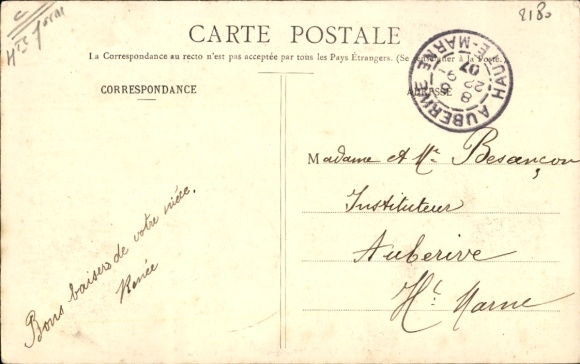 Hte Marne
2180
CARTE POSTALE
La Correspondance au recto n'est pas acceptée par tous les Pays Étrangers. (Se renseigner à la Poste.)
CORRESPONDANCE
ADRESSE
AUBERIVE
HAUTE-MARNE
8
22 -9
07
Madame et Mr Besançon
Instituteur
Auberive
Hte Marne
Bons baisers de votre nièce.
Renée